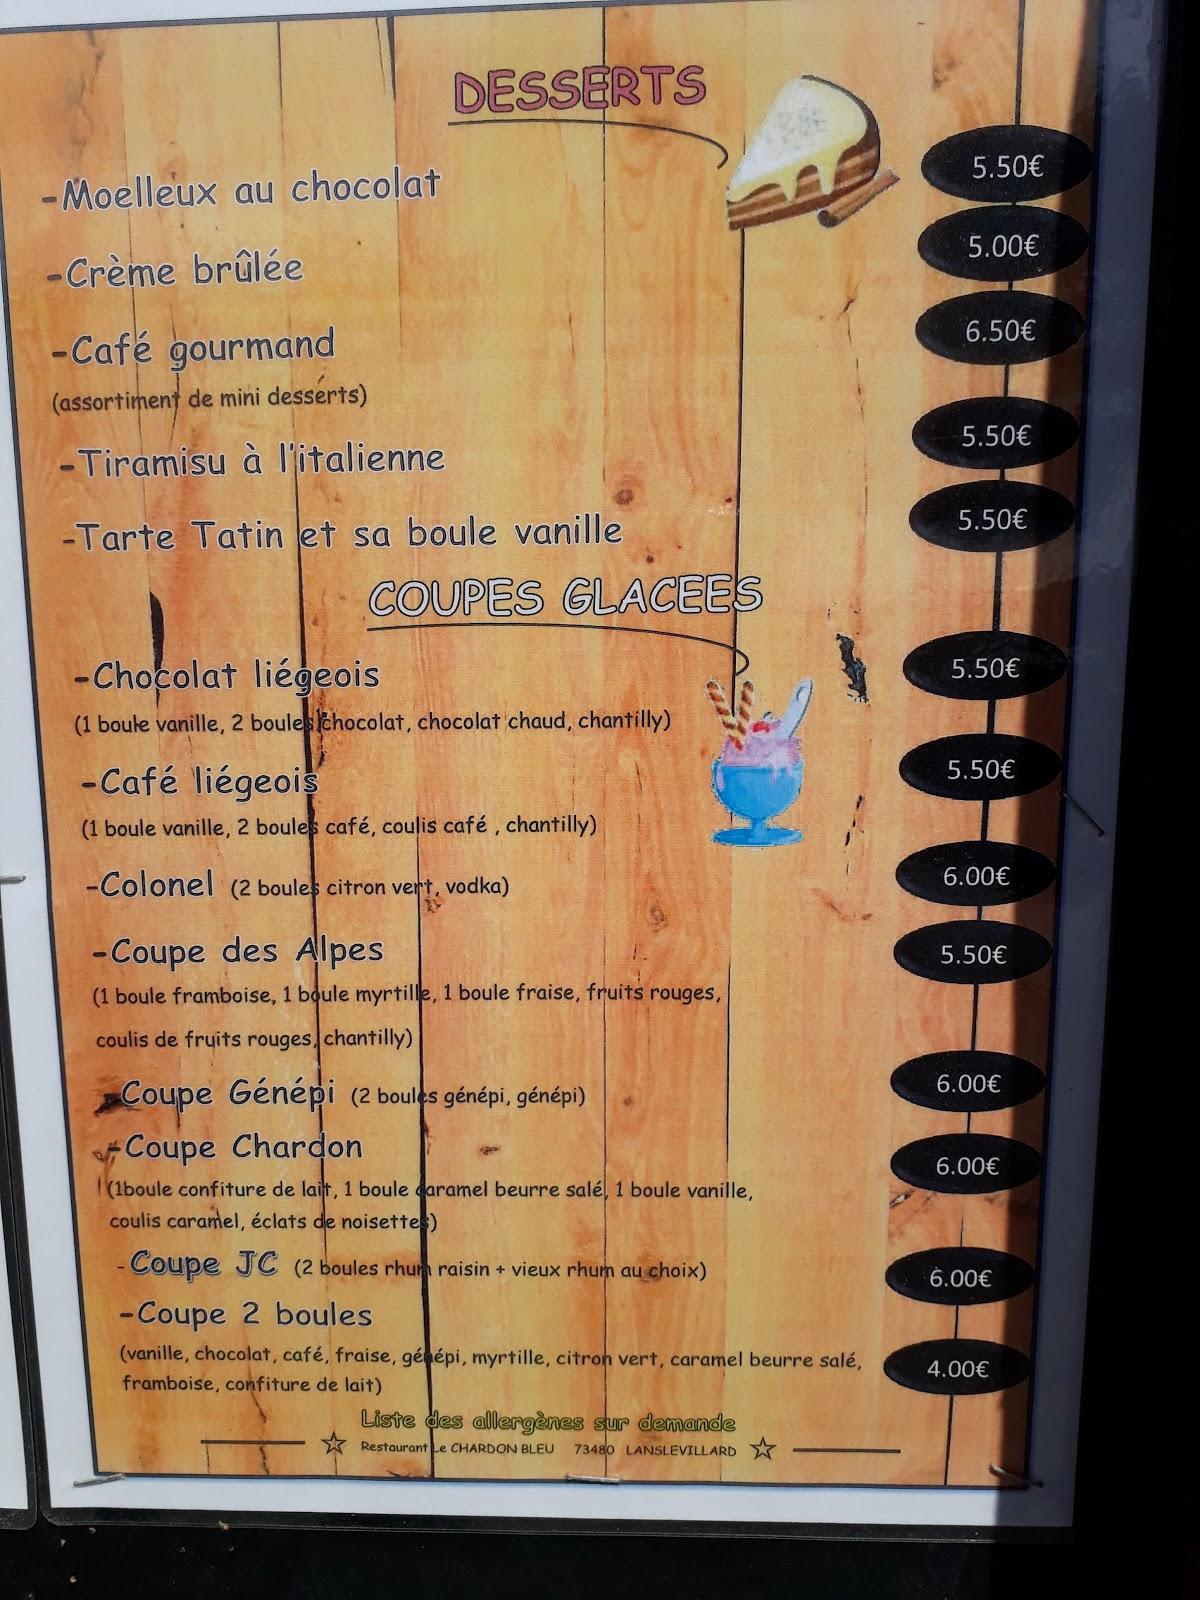 DESSERTS
-Moelleux au chocolat 5.50€
-Crème brûlée 5.00€
-Café gourmand 6.50€
(assortiment de mini desserts)
-Tiramisu à l'italienne 5.50€
-Tarte Tatin et sa boule vanille 5.50€
COUPES GLACEES
-Chocolat liégeois 5.50€
(1 boule vanille, 2 boules chocolat, chocolat chaud, chantilly)
-Café liégeois 5.50€
(1 boule vanille, 2 boules café, coulis café , chantilly)
-Colonel (2 boules citron vert, vodka) 6.00€
-Coupe des Alpes 5.50€
(1 boule framboise, 1 boule myrtille, 1 boule fraise, fruits rouges,
coulis de fruits rouges, chantilly)
-Coupe Génépi (2 boules génépi, génépi) 6.00€
-Coupe Chardon 6.00€
(1boule confiture de lait, 1 boule caramel beurre salé, 1 boule vanille,
coulis caramel, éclats de noisettes)
-Coupe JC (2 boules rhum raisin + vieux rhum au choix) 6.00€
-Coupe 2 boules
(vanille, chocolat, café, fraise, génépi, myrtille, citron vert, caramel beurre salé, 4.00€
framboise, confiture de lait)
Liste des allergènes sur demande
Restaurant Le CHARDON BLEU 73480 LANSLEVILLARD